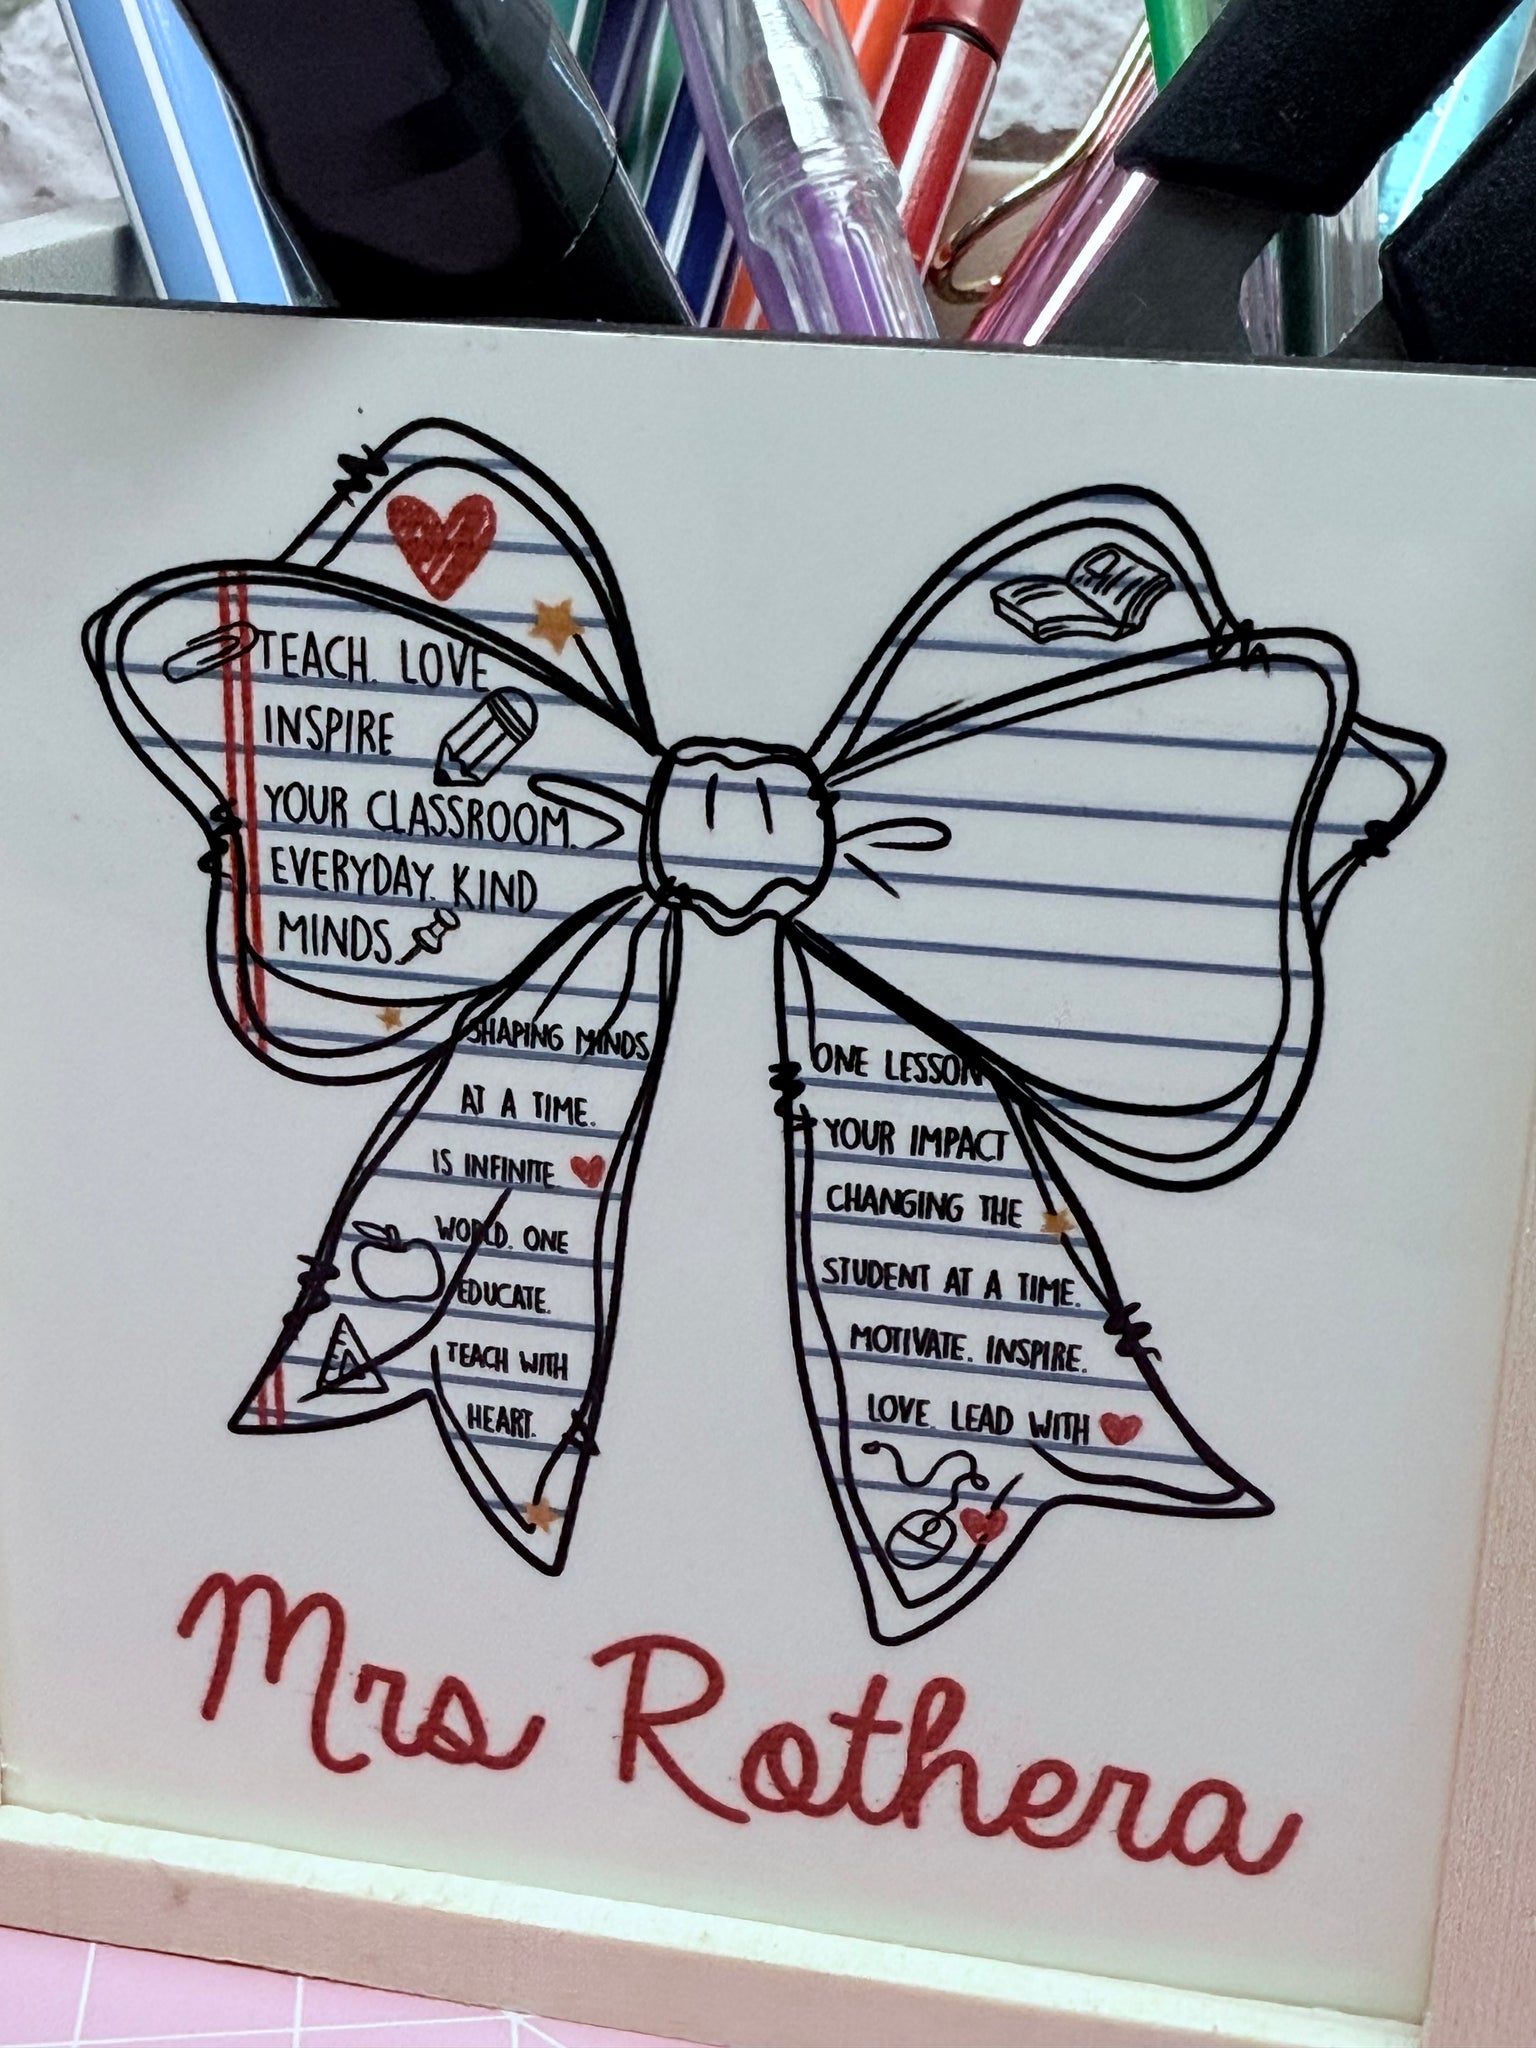 TEACH. LOVE
INSPIRE
YOUR CLASSROOM.
EVERYDAY. KIND
MINDS.
SHAPING MINDS
AT A TIME.
IS INFINITE
WORLD. ONE
EDUCATE.
TEACH WITH
HEART.
ONE LESSON
YOUR IMPACT
CHANGING THE
STUDENT AT A TIME.
MOTIVATE. INSPIRE.
LOVE. LEAD WITH
Mrs Rothera